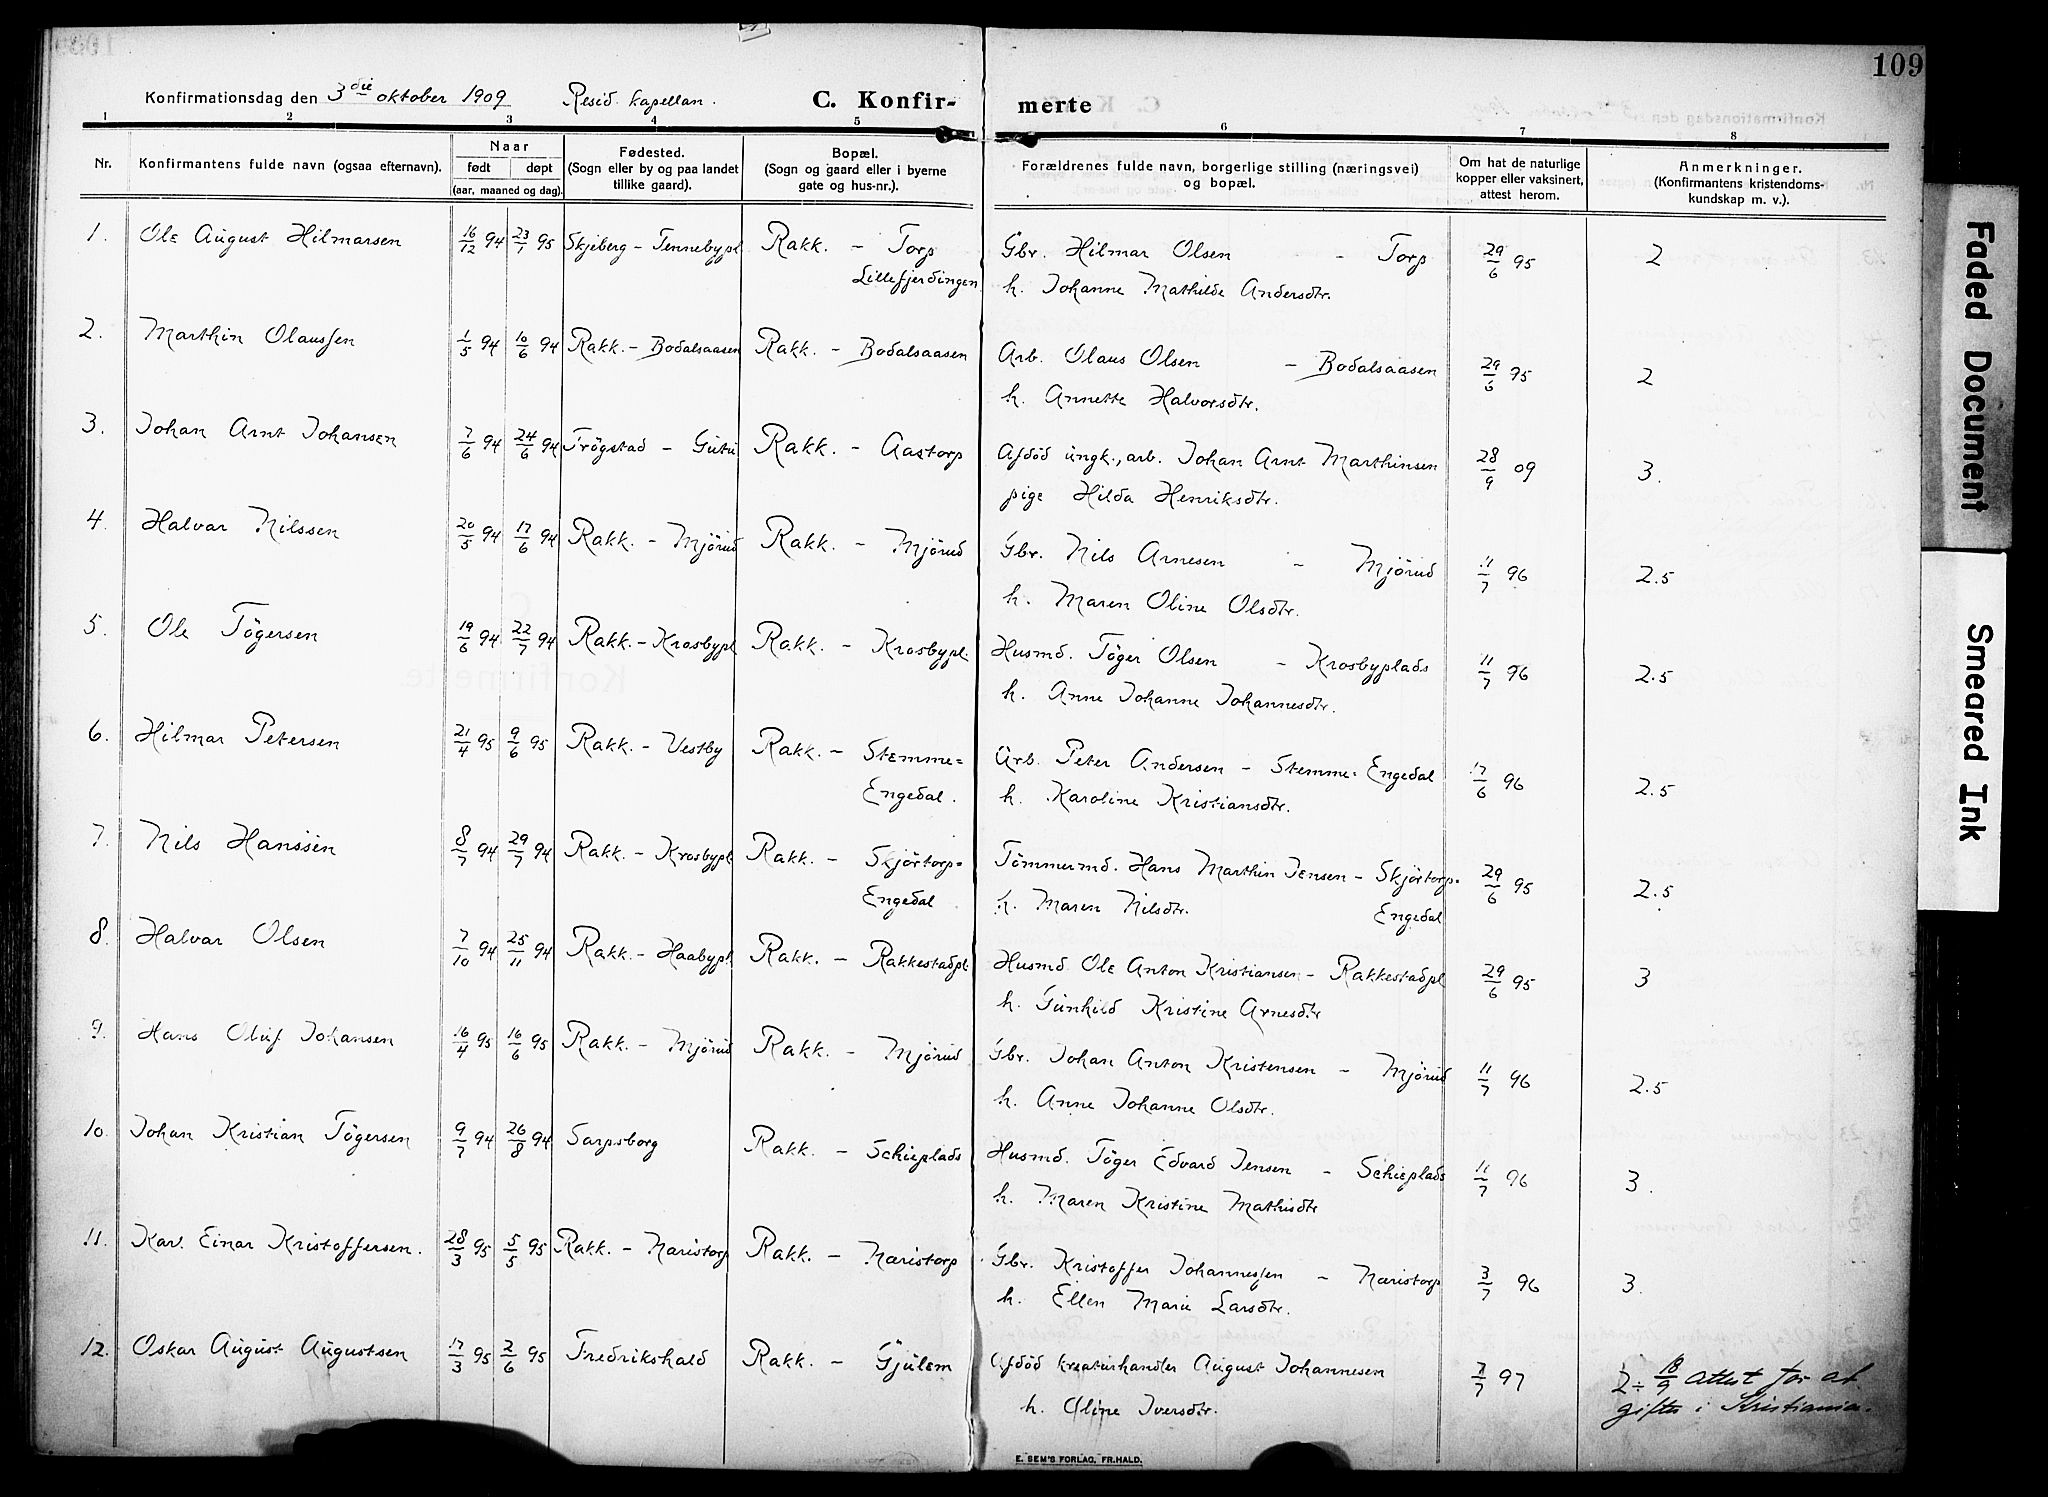 109
Konfirmationsdag den 3die oktober 1909 Resid. kapellan. C. Konfir- merte
1 2 3 4 5 6 7 8
Nr. Konfirmantens fulde navn (ogsaa efternavn). Naar født døpt (aar, maaned og dag). Fødested. (Sogn eller by og paa landet tillike gaard). Bopæl. (Sogn og gaard eller i byerne gate og hus-nr.). Forældrenes fulde navn, borgerlige stilling (næringsvei) og bopæl. Om hat de naturlige kopper eller vaksinert, attest herom. Anmerkninger. (Konfirmantens kristendoms- kundskap m. v.).
1. Ole August Hilmarsen 16/12 94 23/1 95 Skjeberg - Tennebypl Rakk. - Torp Gbr. Hilmar Olsen - Torp 29/6 95 2
Lillefjerdingen h. Johanne Mathilde Andersdtr.
2. Marthin Olaussen 1/5 94 10/6 94 Rakk. - Bodalsaasen Rakk. - Bodalsaasen Arb. Olaus Olsen - Bodalsaasen 29/6 95 2
h. Annette Halvorsdtr.
3. Johan Arnt Johansen 7/6 94 24/6 94 Trögstad - Gutu Rakk. - Aastorp Afdöd ungk., arb. Johan Arnt Marthinsen 28/9 09 3.
pige Hilda Henriksdtr.
4. Halvar Nilssen 20/5 94 17/6 94 Rakk. - Mjörud Rakk. - Mjörud Gbr. Nils Arnesen - Mjörud 11/7 96 2.5
h. Maren Oline Olsdtr.
5. Ole Tögersen 19/6 94 22/7 94 Rakk. - Krosbypl Rakk. - Krosbypl. Husmd. Töger Olsen - Krosbyplads 11/7 96 2.5
h. Anne Johanne Johannesdtr.
6. Hilmar Petersen 21/4 95 9/6 95 Rakk. - Vestby Rakk. - Stemme= Arb. Peter Andersen - Stemme=Engedal 17/6 96 2.5
Engedal. h. Karoline Kristiansdtr.
7. Nils Hanssen 8/7 94 29/7 94 Rakk. - Krosbypl. Rakk. - Skjörtorp= Tömmermd. Hans Marthin Jensen - Skjörtorp= 29/6 95 2.5
Engedal h. Maren Nilsdtr. Engedal
8. Halvar Olsen 7/10 94 25/11 94 Rakk. - Haabypl. Rakk. - Rakkestadpl Husmd Ole Anton Kristiansen - Rakkestadpl 29/6 95 3
h. Gunhild Kristine Arnesdtr
9. Hans Oluf Johansen 16/4 95 16/6 95 Rakk. - Mjörud Rakk. - Mjörud Gbr. Johan Anton Kristensen - Mjörud 11/7 96 2.5
h. Anne Johanne Olsdtr.
10. Johan Kristian Tögersen 9/7 94 26/8 94 Sarpsborg Rakk. - Schieplads Husmd. Töger Edvard Jensen - Schieplads 11/7 96 3.
h. Maren Kristine Mathisdtr
11. Karl Einar Kristoffersen. 28/3 95 5/5 95 Rakk. - Næristorp Rakk. - Næristorp Gbr. Kristoffer Johannessen - Næristorp 3/7 96 3.
h. Ellen Marie Larsdtr.
12. Oskar August Augustsen 17/3 95 2/6 95 Fredrikshald Rakk. - Gjulem Afdöd kreaturhandler August Johannesen 7/7 97 2 ÷ 18/9 attest for at
h. Oline Iversdtr. giftes i Kristiania.
E. SEM'S FORLAG, FR.HALD.
Faded Document
Smeared Ink